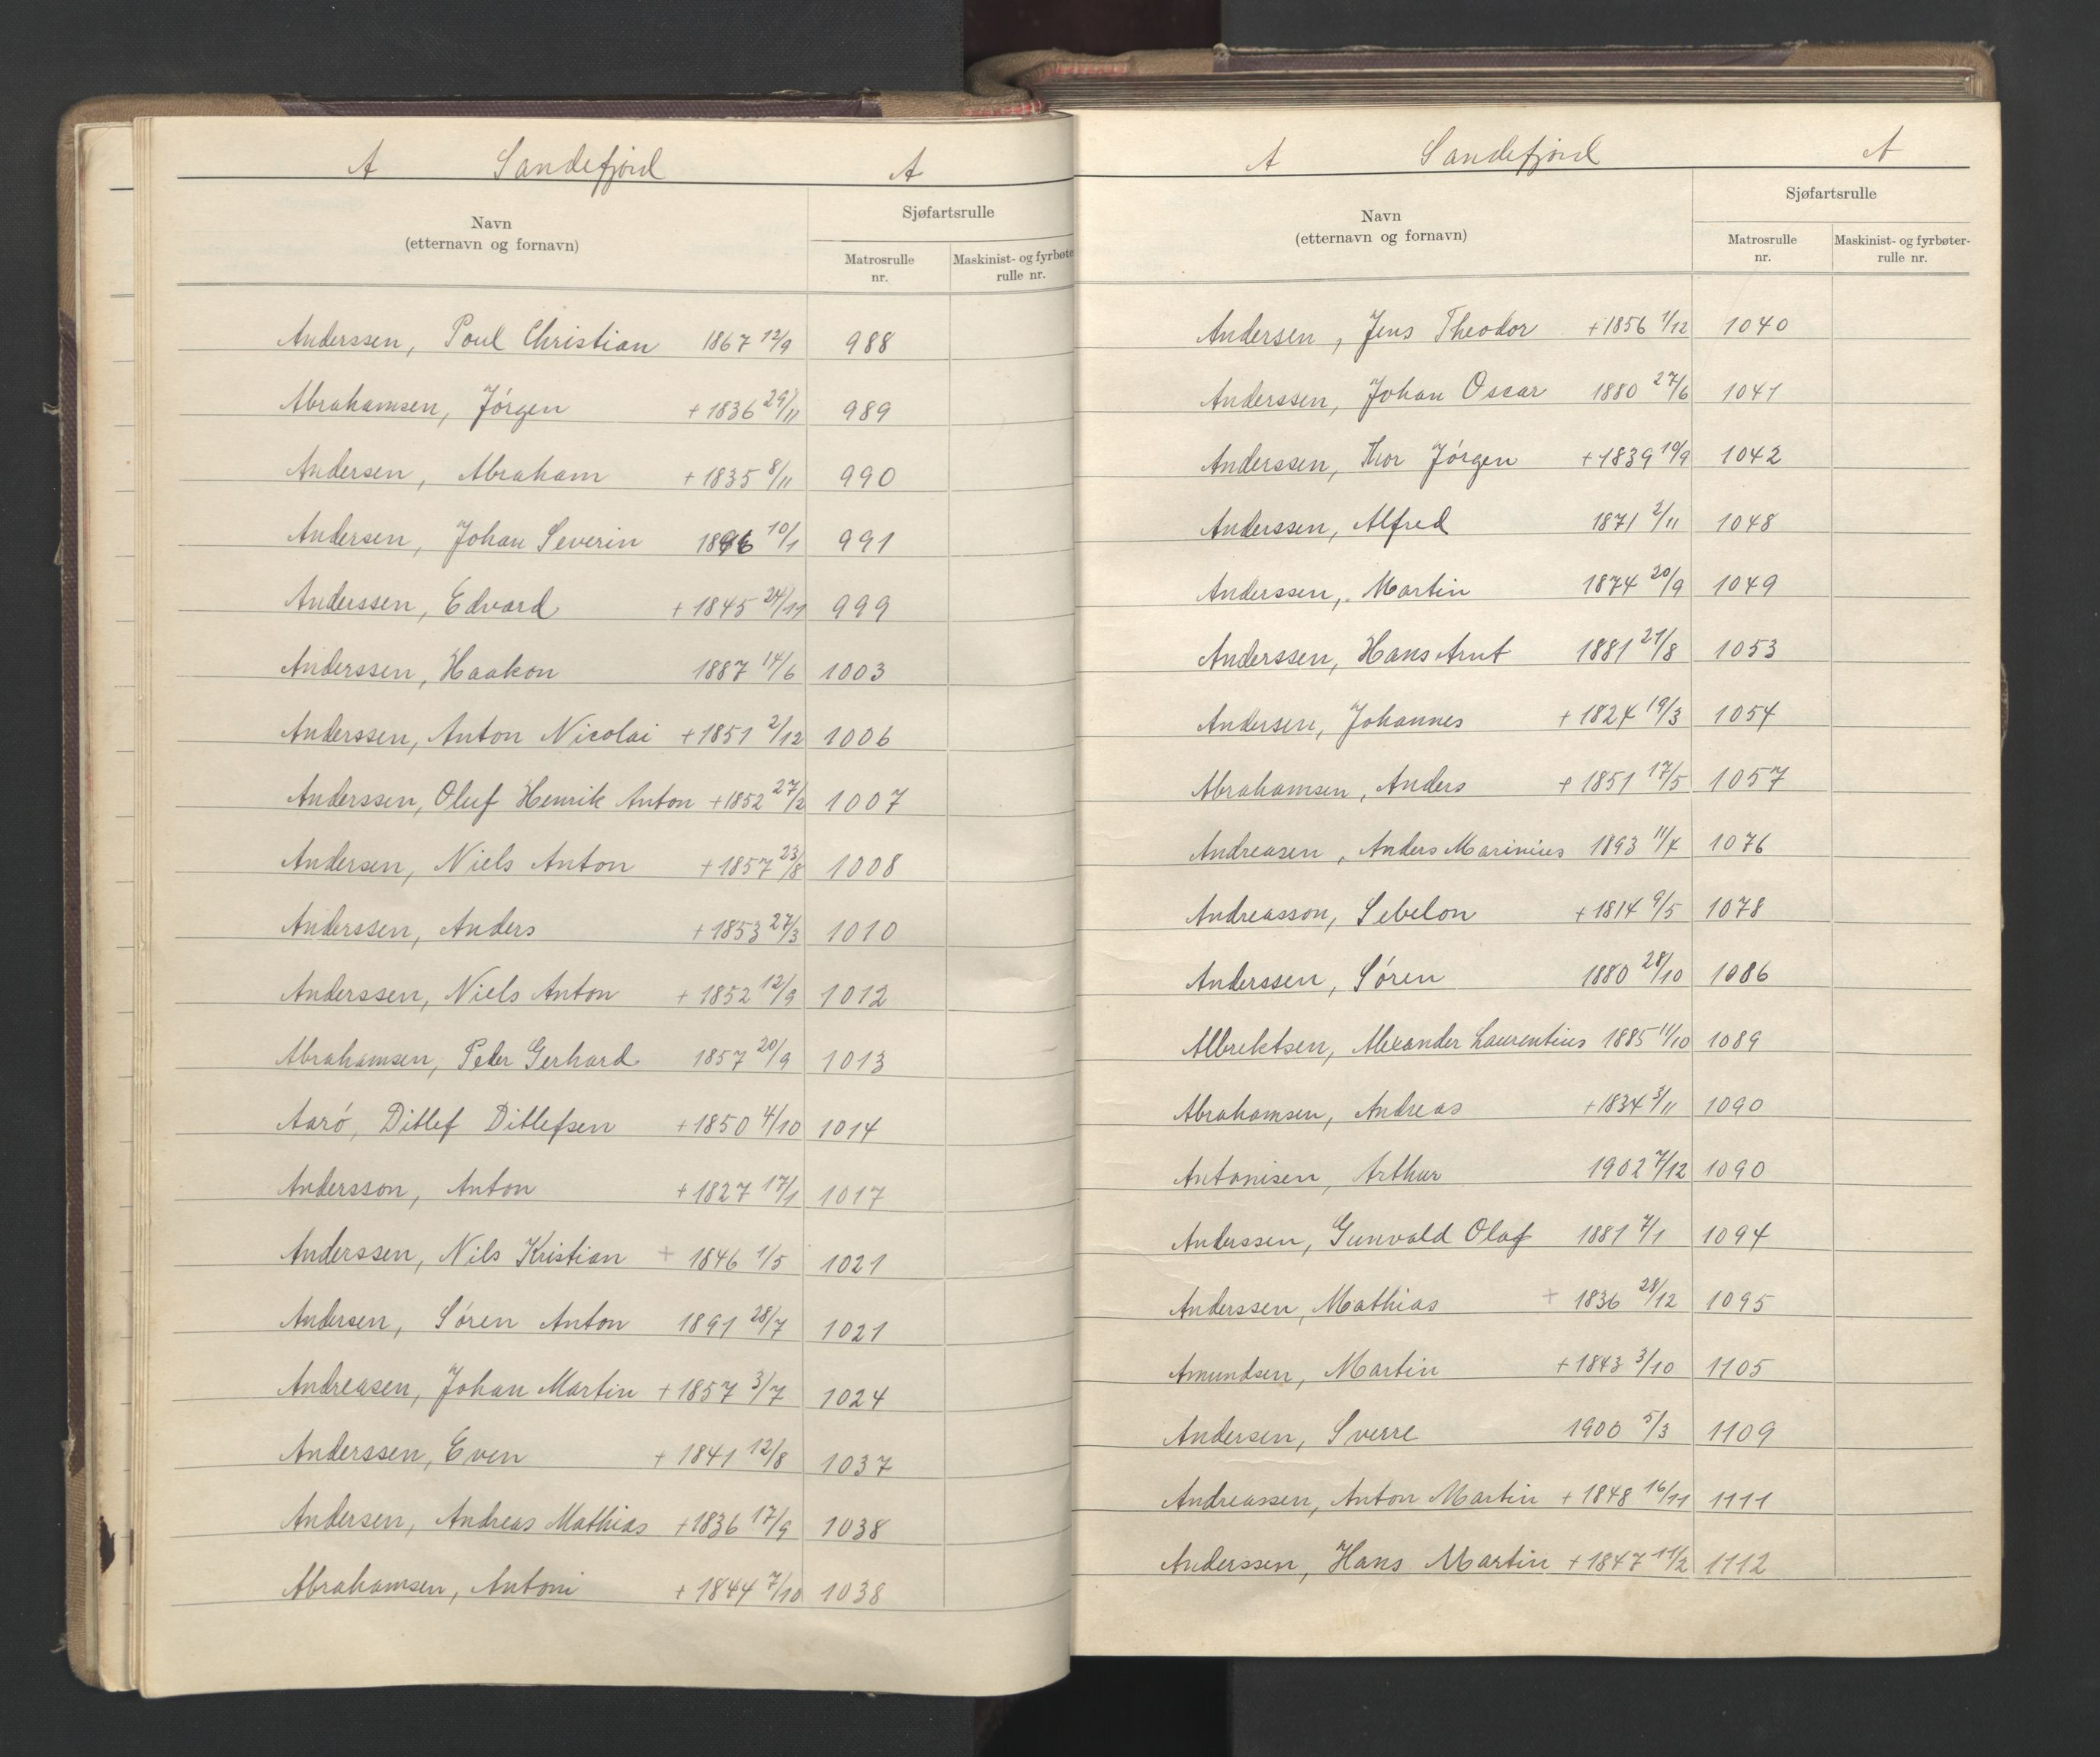 A Sandefjord A
Navn
(etternavn og fornavn)
Sjøfartsrulle
Matrosrulle
nr.
Maskinist- og fyrbøte
rulle nr.
Anderssen, Poul Christian 1867 12/9 988
Abrahamsen, Jörgen + 1836 29/11 989
Andersen, Abraham + 1835 8/11 990
Andersen, Johan Severin 1896 10/1 991
Anderssen, Edvard + 1845 24/11 999
Anderssen, Haakon 1887 14/6 1003
Anderssen, Anton Nicolai + 1851 2/12 1006
Anderssen, Oluf Henrik Anton + 1852 27/2 1007
Andersen, Niels Anton + 1857 23/8 1008
Anderssen, Anders + 1853 27/3 1010
Anderssen, Niels Anton + 1852 12/9 1012
Abrahamsen, Peder Gerhard 1857 20/9 1013
Aarö, Ditlef Ditlefsen + 1850 4/10 1014
Andersson, Anton + 1827 17/1 1017
Anderssen, Nils Kristian + 1846 1/5 1021
Andersen, Sören Anton 1891 28/7 1021
Andreasen, Johan Martin + 1857 3/7 1024
Anderssen, Even + 1841 12/8 1037
Andersen, Andreas Mathias + 1836 17/9 1038
Abrahamsen, Antoni + 1844 7/10 1038
A Sandefjord A
Navn
(etternavn og fornavn)
Sjøfartsrulle
Matrosrulle
nr.
Maskinist- og fyrbøter-
rulle nr.
Andersen, Jens Theodor + 1856 1/12 1040
Anderssen, Johan Oscar 1880 27/6 1041
Anderssen, Thor Jörgen + 1839 19/9 1042
Anderssen, Alfred 1871 2/11 1048
Anderssen, Martin 1874 20/9 1049
Anderssen, Hans Arnt 1881 21/8 1053
Andersen, Johannes + 1824 19/3 1054
Abrahamsen, Anders + 1851 17/5 1057
Andreasen, Anders Marinius 1893 11/4 1076
Andreasson, Sebelon + 1814 9/5 1078
Anderssen, Sören 1880 28/10 1086
Albrektsen, Alexander Laurentius 1885 11/10 1089
Abrahamsen, Andreas + 1834 3/11 1090
Antonisen, Arthur 1902 7/12 1090
Anderssen, Gunvald Olaf 1881 7/1 1094
Anderssen, Mathias + 1836 28/12 1095
Amundsen, Martin + 1843 3/10 1105
Andersen, Sverre 1900 5/3 1109
Andreassen, Anton Martin + 1848 16/11 1111
Anderssen, Hans Martin + 1847 11/2 1112